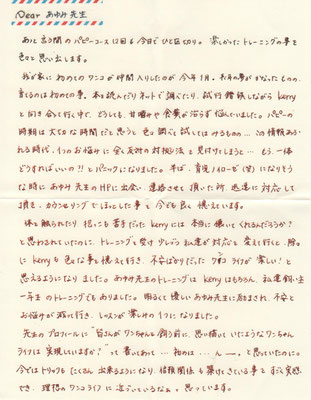 Dear あゆみ先生
あっと言う間のパピーコース12回も今日でひと区切り。楽しかったトレーニングの事を
色々と思い出します。
我が家に初めてのワンコが仲間入りしたのが今年1月。
育てるのは初めての事、本を読んだりネットで調べたり、試行錯誤しながら kerry
と向き合って行く中で、どうしても、甘噛みや食糞が治らず悩んでいました。パピーの
時期は大切な時間だと思うと色々調べて試してはみるものの…この情報あふ
れる時代、1つのお悩みに全く反対の対処法を見付けてしまうと…もう、一体
どうすればいいの!!とパニックになりました。半ば、育児ノイローゼ(笑)になりそう
な時にあゆみ先生のHPに出会い、連絡させて頂いた所、迅速に対応して
頂き、カウンセリングでほっとした事を今でも良く憶えています。
体を触られたり抱っこも苦手だったkerryには本当に懐いてくれるんだろうか?
と思わされていたのに、トレーニングを受け少しづつ私達が対応を変えて行くと、除々
にkerryも色々な事を憶えて行き、不安ばかりだったワンコライフが楽しい!と
思えるようになりました。あゆみ先生のトレーニングはkerryはもちろん、私達飼い主
一年生のトレーニングでもありました。明るくて優しいあゆみ先生に励まされ、不安と
お悩みが減って行き、レッスンが楽しみの1つになりました。
先生のプロフィールに"皆さんがワンちゃんを飼う前に、思い描いていたようなワンちゃん
ライフは実現していますか?"って書いてあって…初めは…んー。と思っていたのに。
今ではトリックもたくさん出来るようになり、信頼関係も築けてきている事をすごく実感
でき、理想のワンコライフに近づいているなぁ。と思っています。